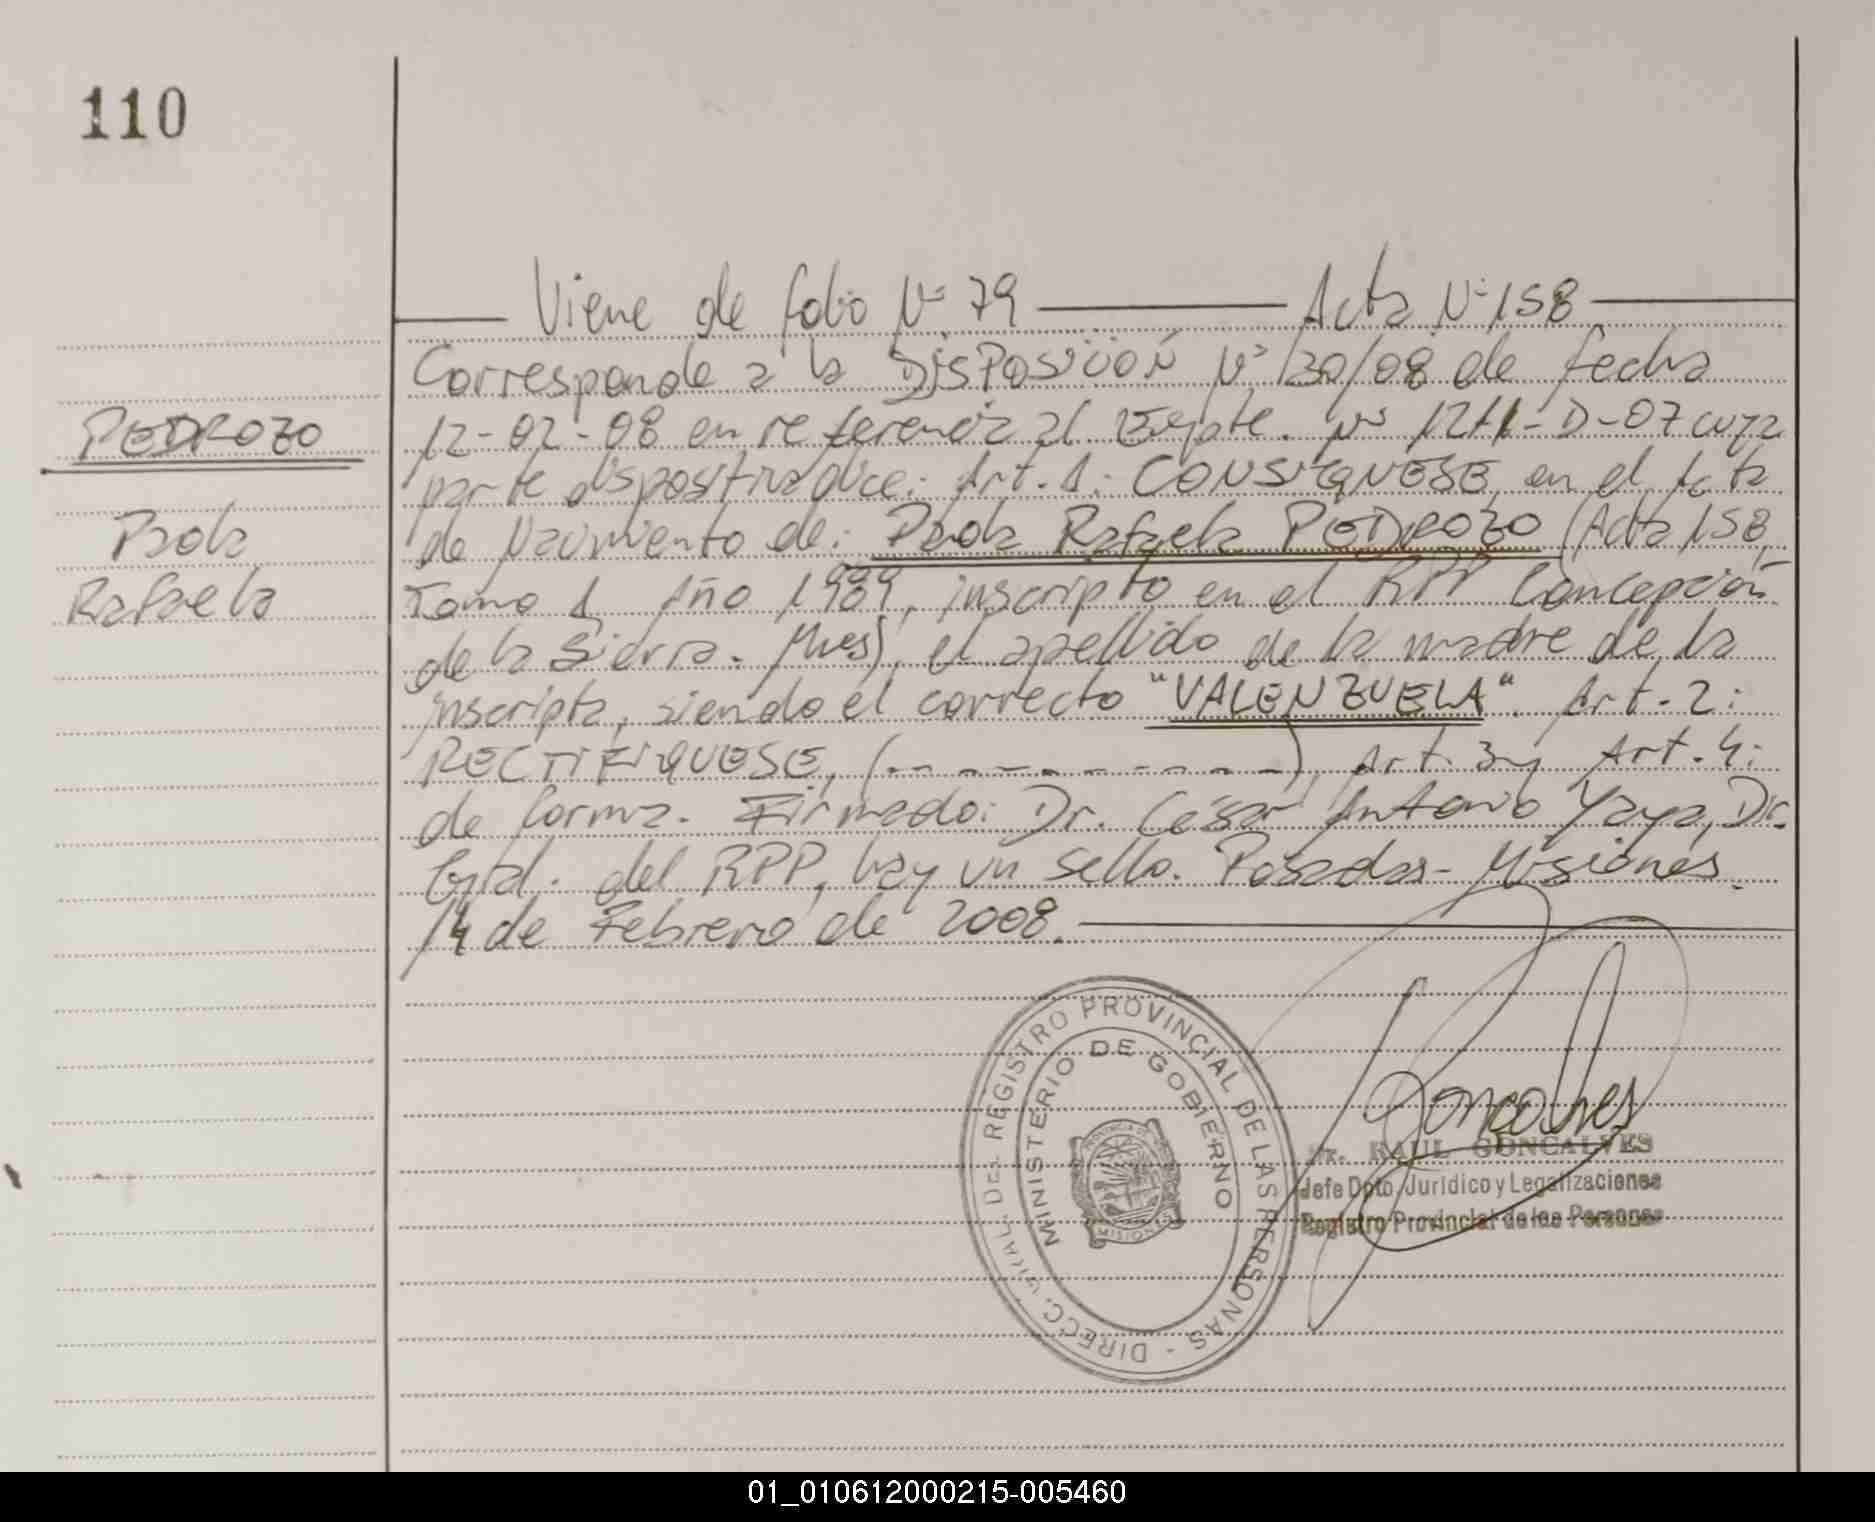 110
Viene de folio Nº 79 Acta Nº 158
Corresponde a la DISPOSICIÓN Nº 130/08 de fecha
PEDROZO
12-02-08 en referencia al Expte. Nº 1211-D-07 cuya
parte dispositiva dice: Art. 1: CONSIGNESE, en el Acta
Paola
de Nacimiento de: Paola Rafaela PEDROZO (Acta 158,
Rafaela
Tomo 1 Año 1989, inscripto en el RPP Concepción
de la Sierra. Mnes), el apellido de la madre de la
inscripta, siendo el correcto "VALENZUELA". Art. 2:
RECTIFIQUESE, (- - - - - - - - - -), Art. 3 y Art. 4:
de forma. Firmado: Dr. César Antonio Yaya, Dir.
Gral. del RPP, hay un sello. Posadas - Misiones.
14 de Febrero de 2008.
DIRECC. GRAL. DEL REGISTRO PROVINCIAL DE LAS PERSONAS -
MINISTERIO DE GOBIERNO
PROVINCIA DE
MISIONES
Goncalves
Dr. RAUL GONCALVES
Jefe Dpto. Jurídico y Legalizaciones
Registro Provincial de las Personas
01_010612000215-005460